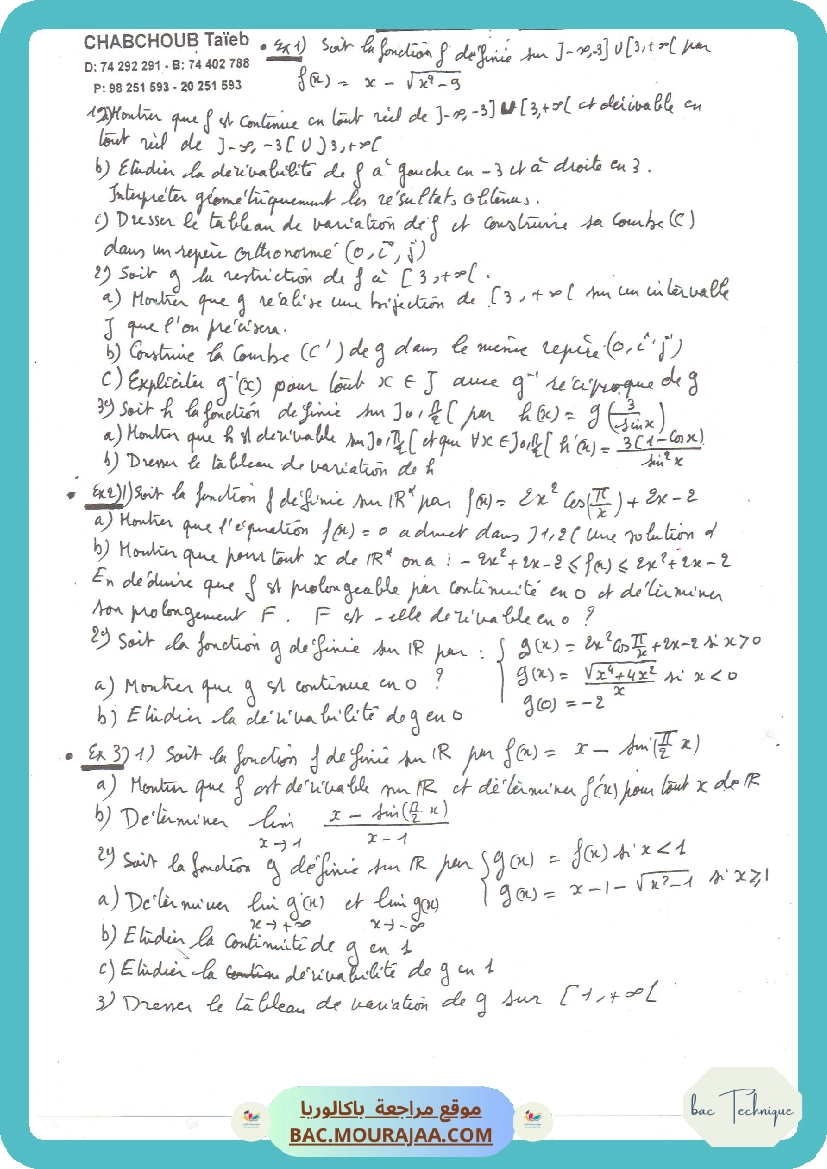 CHABCHOUB Taïeb
D: 74 292 291 - B: 74 402 788
P: 98 251 593 - 20 251 593
• Ex 1) Soit la fonction f définie sur ]-∞,-3] ∪ [3,+∞[ par
f(x) = x - √(x²-9)
1°)a) Montrer que f est continue en tout réel de ]-∞,-3] ∪ [3,+∞[ et dérivable en
tout réel de ]-∞,-3[ ∪ ]3,+∞[
b) Etudier la dérivabilité de f à gauche en -3 et à droite en 3.
Interpréter géométriquement les résultats obtenus.
c) Dresser le tableau de variation de f et construire sa courbe (C)
dans un repère orthonormé (o, i⃗, j⃗)
2°) Soit g la restriction de f à [3,+∞[.
a) Montrer que g réalise une bijection de [3,+∞[ sur un intervalle
J que l'on précisera.
b) Construire la courbe (C') de g dans le même repère (o, i⃗, j⃗)
c) Expliciter g⁻¹(x) pour tout x ∈ J avec g⁻¹ réciproque de g
3°) Soit h la fonction définie sur ]0,π/2[ par h(x) = g(3/sinx)
a) Montrer que h est dérivable sur ]0,π/2[ et que ∀x ∈ ]0,π/2[ h'(x) = 3(1-cosx)/sin²x
b) Dresser le tableau de variation de h
• Ex 2) 1) Soit la fonction f définie sur IR* par f(x) = 2x² cos(π/x) + 2x - 2
a) Montrer que l'équation f(x) = 0 admet dans ]1,2[ une solution α
b) Montrer que pour tout x de IR* on a : -2x²+2x-2 ≤ f(x) ≤ 2x²+2x-2
En déduire que f est prolongeable par continuité en 0 et déterminer
son prolongement F. F est-elle dérivable en 0 ?
2°) Soit la fonction g définie sur IR par : { g(x) = 2x² cos π/x + 2x-2 si x>0
g(x) = √(x⁴+4x²)/x si x<0
g(0) = -2
a) Montrer que g est continue en 0 ?
b) Etudier la dérivabilité de g en 0
• Ex 3) 1) Soit la fonction f définie sur IR par f(x) = x - sin(π/2 x)
a) Montrer que f est dérivable sur IR et déterminer f'(x) pour tout x de IR
b) Déterminer lim x→1 (x - sin(π/2 x))/(x-1)
2°) Soit la fonction g définie sur IR par { g(x) = f(x) si x<1
g(x) = x-1-√(x²-1) si x≥1
a) Déterminer lim x→+∞ g(x) et lim x→-∞ g(x)
b) Etudier la continuité de g en 1
c) Etudier la dérivabilité de g en 1
3) Dresser le tableau de variation de g sur [1,+∞[
bac Technique
موقع مراجعة باكالوريا
BAC.MOURAJAA.COM